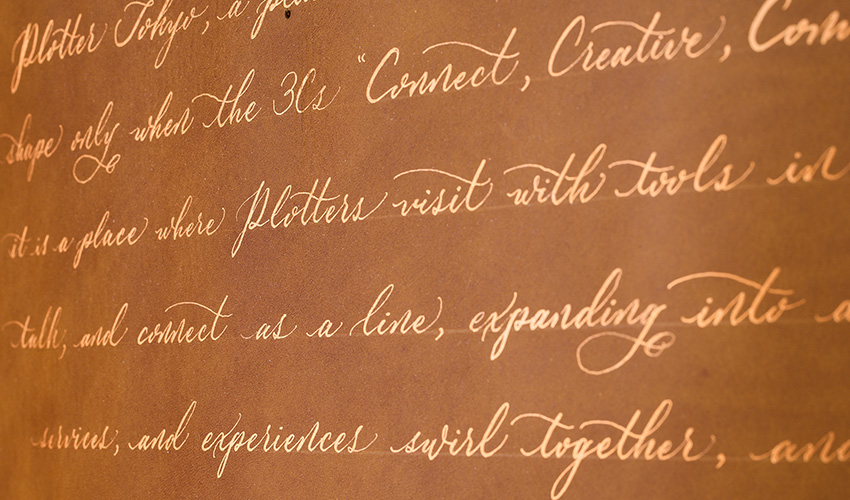 Plotter Tokyo, a
shape only when the 3Cs "Connect, Creative, Com
it is a place where Plotters visit with tools in
talk, and connect as a line, expanding into a
services, and experiences swirl together, and